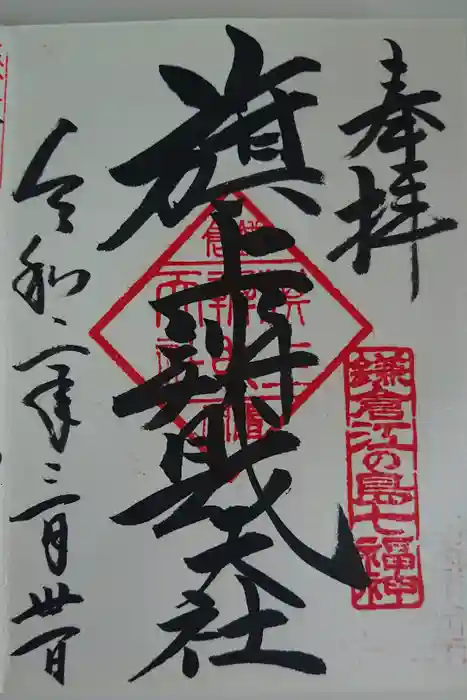 奉拝
鎌倉江の島七福神
旗上辨財天社
令和二年三月卅一日